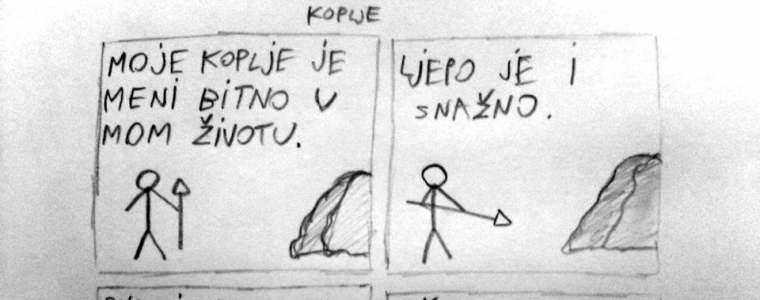 KOPLJE
MOJE KOPLJE JE
MENI BITNO U
MOM ŽIVOTU.
LJEPO JE I
SNAŽNO.